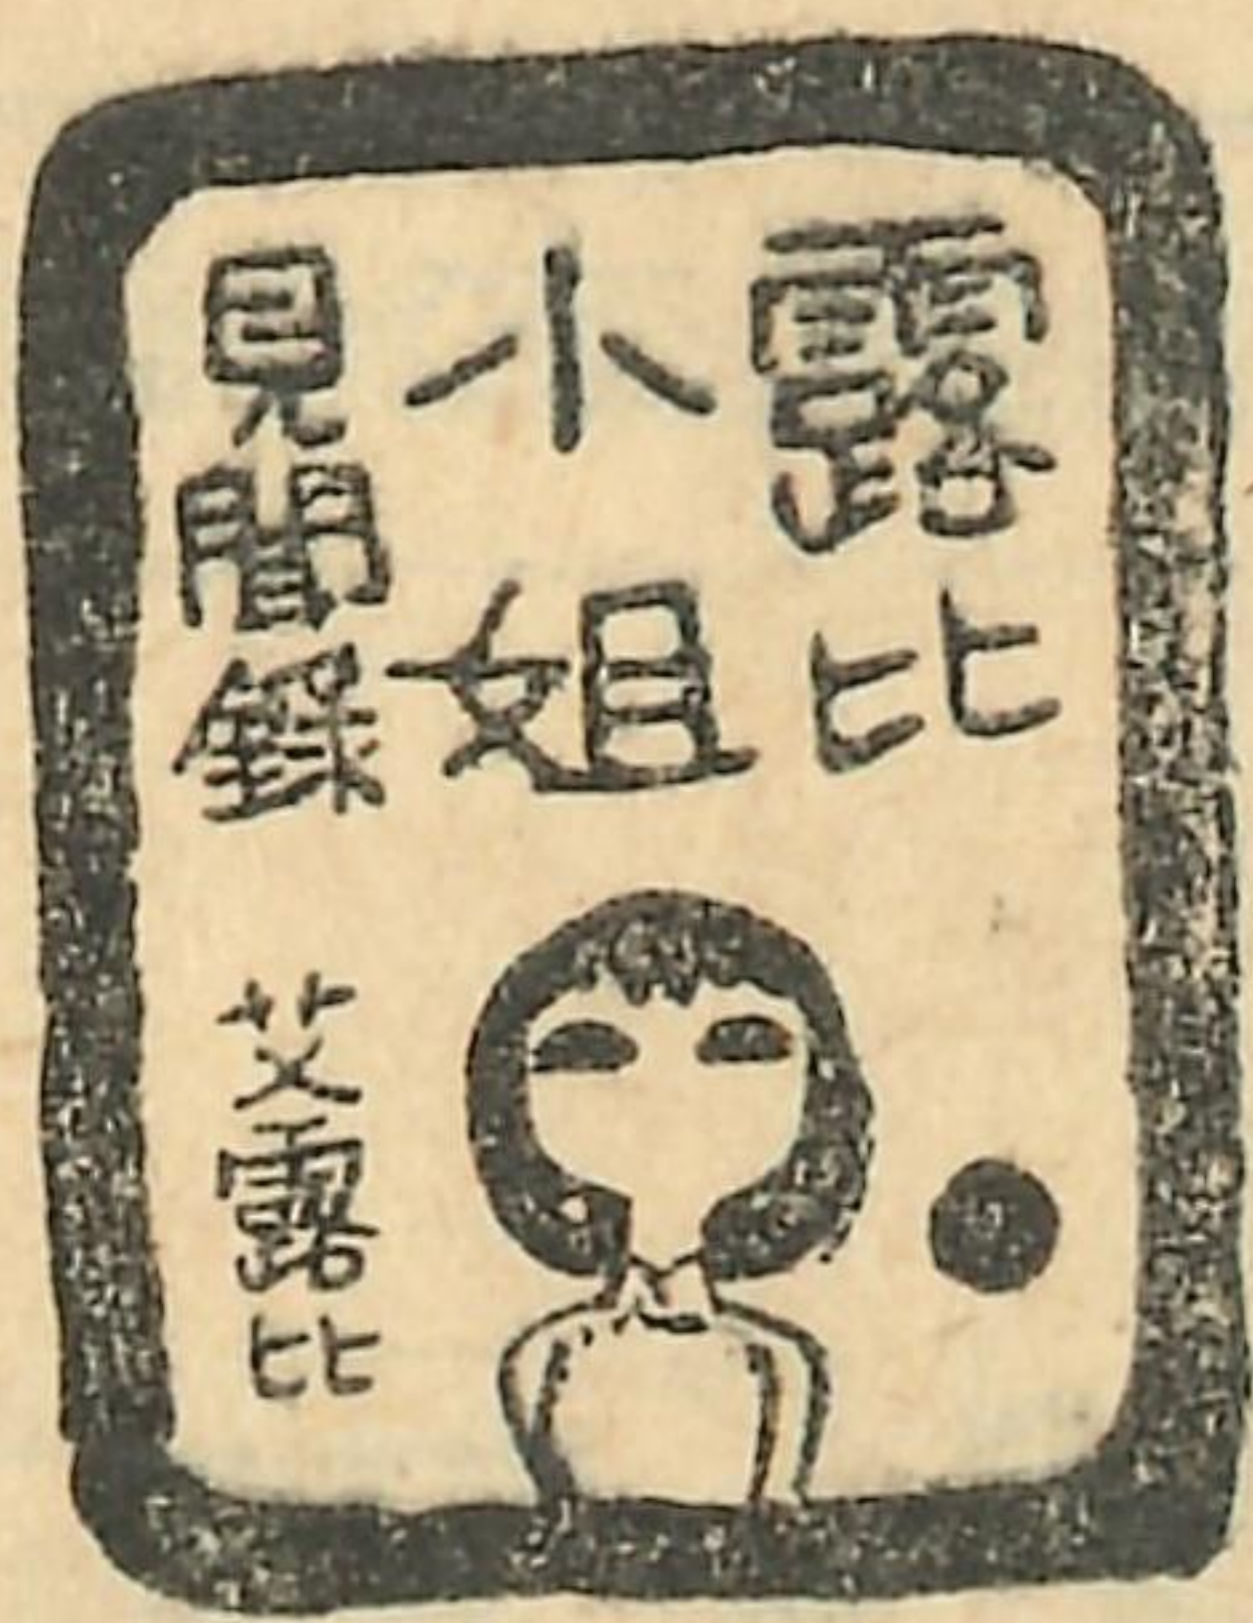 露比
小姐
見聞錄
艾露比